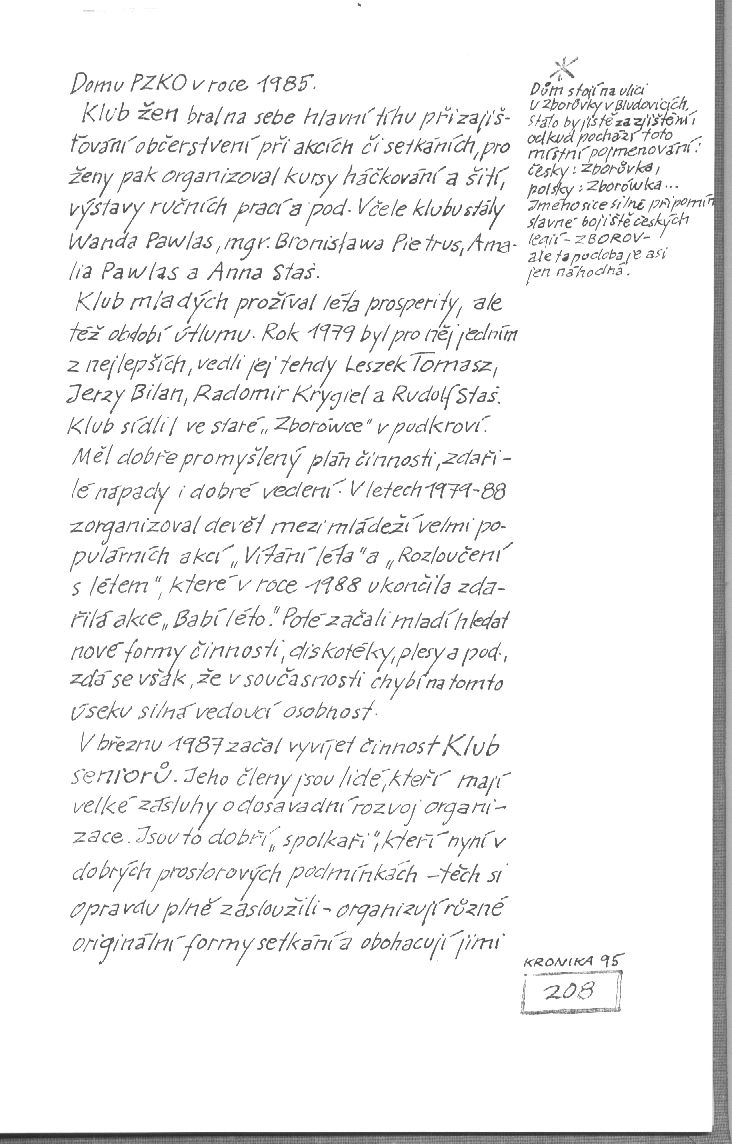 Domu PZKO v roce 1985.
Klub žen bral na sebe hlavní tíhu při zajiš-
ťování občerstvení při akcích či setkáních, pro
ženy pak organizoval kursy háčkování a šití,
výstavy ručních prací a pod. V čele klubu stály
Wanda Pawlas, mgr. Bronisława Pietrus, Ama-
lia Pawlas a Anna Staš.
Klub mladých prožíval léta prosperity, ale
též období útlumu. Rok 1979 byl pro něj jedním
z nejlepších, vedli jej tehdy Leszek Tomasz,
Jerzy Bilan, Radomír Krygiel a Rudolf Staš.
Klub sídlil ve staré „Zborówce" v podkroví.
Měl dobře promyšlený plán činnosti, zdaři-
lé nápady i dobré vedení. V letech 1979-88
zorganizoval devět mezi mládeží velmi po-
pulárních akcí „Vítání léta" a „Rozloučení
s létem", které v roce 1988 ukončila zda-
řilá akce „Babí léto." Poté začali mladí hledat
nové formy činnosti, diskotéky, plesy a pod.,
zdá se však, že v současnosti chybí na tomto
úseku silná vedoucí osobnost.
V březnu 1987 začal vyvíjet činnost Klub
seniorů. Jeho členy jsou lidé, kteří mají
velké zásluhy o dosavadní rozvoj organi-
zace. Jsou to dobří „spolkaři", kteří nyní v
dobrých prostorových podmínkách – těch si
opravdu plně zasloužili – organizují různé
originální formy setkání a obohacují jimi
Dům stojí na ulici
U Zborůvky v Bludovicích,
stálo by jistě za zjištění
odkud pochází toto
místní pojmenování:
česky: Zborůvka,
polsky: Zborówka...
Jméno sice silně připomín
slavné bojiště českých
legií – ZBOROV –
ale ta podoba je asi
jen náhodná.
KRONIKA 95
208